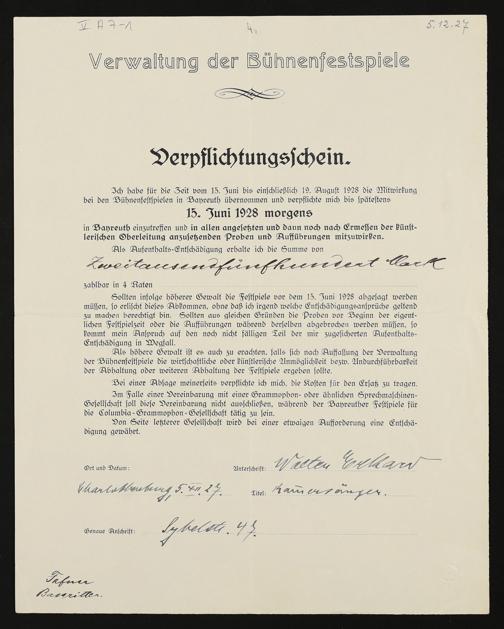 V A 7-1
4.
5.12.27
Verwaltung der Bühnenfestspiele
Verpflichtungsschein.
Ich habe für die Zeit vom 15. Juni bis einschließlich 19. August 1928 die Mitwirkung
bei den Bühnenfestspielen in Bayreuth übernommen und verpflichte mich bis spätestens
15. Juni 1928 morgens
in Bayreuth einzutreffen und in allen angesetzten und dann noch nach Ermessen der künst-
lerischen Oberleitung anzusetzenden Proben und Aufführungen mitzuwirken.
Als Aufenthalts-Entschädigung erhalte ich die Summe von
Zweitausendfünfhundert Mark
zahlbar in 4 Raten
Sollten infolge höherer Gewalt die Festspiele vor dem 15. Juni 1928 abgesagt werden
müssen, so erlischt dieses Abkommen, ohne daß ich irgend welche Entschädigungsansprüche geltend
zu machen berechtigt bin. Sollten aus gleichen Gründen die Proben vor Beginn der eigent-
lichen Festspielzeit oder die Aufführungen während derselben abgebrochen werden müssen, so
kommt mein Anspruch auf den noch nicht fälligen Teil der mir zugesicherten Aufenthalts-
Entschädigung in Wegfall.
Als höhere Gewalt ist es auch zu erachten, falls sich nach Auffassung der Verwaltung
der Bühnenfestspiele die wirtschaftliche oder künstlerische Unmöglichkeit bezw. Undurchführbarkeit
der Abhaltung oder weiteren Abhaltung der Festspiele ergeben sollte.
Bei einer Absage meinerseits verpflichte ich mich, die Kosten für den Ersatz zu tragen.
Im Falle einer Vereinbarung mit einer Grammophon- oder ähnlichen Sprechmaschinen-
Gesellschaft soll diese Vereinbarung nicht ausschließen, während der Bayreuther Festspiele für
die Columbia-Grammophon-Gesellschaft tätig zu sein.
Von Seite letzterer Gesellschaft wird bei einer etwaigen Aufforderung eine Entschä-
digung gewährt.
Ort und Datum:
Unterschrift: Walter Eckhard
Charlottenburg, 5. XII. 27.
Titel: Kammersänger.
Genaue Anschrift: Sybelstr. 47.
Fafner